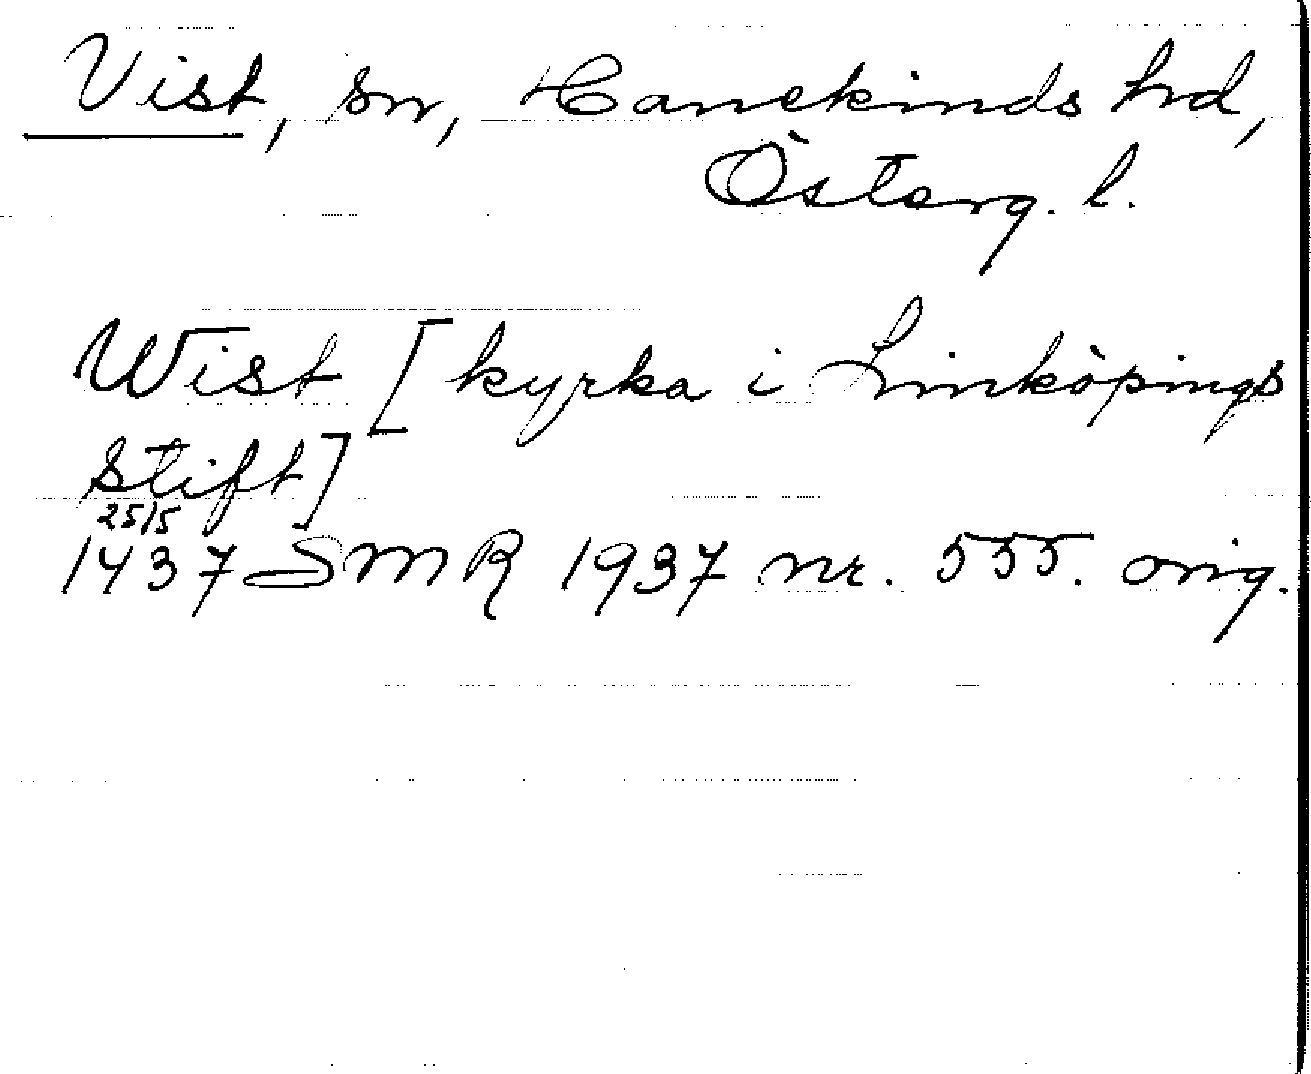 Vist, sn, Hanekinds hrd,
Österg. l.
Wist [kyrka i Linköpings
stift]
25/5
1437 SMR 1937 nr. 555. orig.